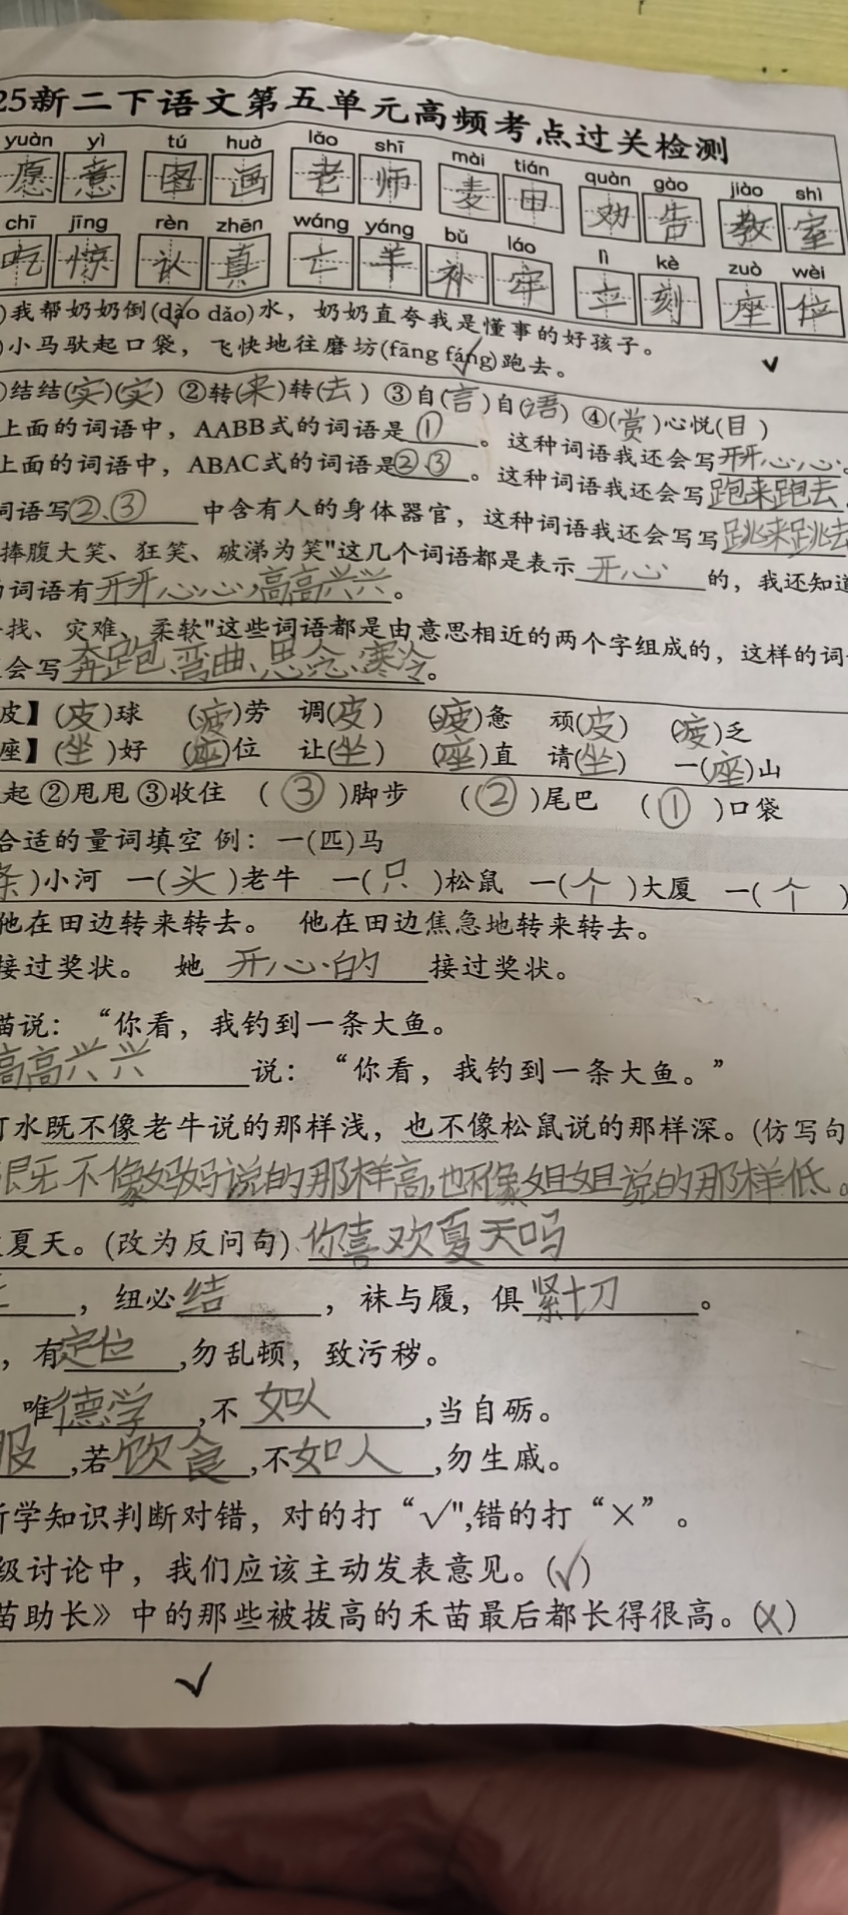 25新二下语文第五单元高频考点过关检测
yuàn yì tú huà lǎo shī mài tián quàn gào jiào shì
愿意 图画 老师 麦田 劝告 教室
chī jīng rèn zhēn wáng yáng bǔ láo lì kè zuò wèi
吃惊 认真 亡羊补牢 立刻 座位
)我帮奶奶倒(dào dǎo)水，奶奶直夸我是懂事的好孩子。
)小马驮起口袋，飞快地往磨坊(fāng fáng)跑去。
)结结(实)(实) ②转(来)转(去) ③自(言)自(语) ④(赏)心悦(目)
上面的词语中，AABB式的词语是①。这种词语我还会写开开心心。
上面的词语中，ABAC式的词语是②③。这种词语我还会写跑来跑去
词语写②、③中含有人的身体器官，这种词语我还会写写跳来跳去
捧腹大笑、狂笑、破涕为笑"这几个词语都是表示开心的，我还知道
词语有开开心心、高高兴兴。
找、灾难、柔软"这些词语都是由意思相近的两个字组成的，这样的词
会写奔跑、弯曲、思念、寒冷。
皮】(皮)球 (疲)劳 调(皮) (疲)惫 顽(皮) (疲)乏
座】(坐)好 (座)位 让(坐) (座)直 请(坐) 一(座)山
起 ②甩甩 ③收住 (③)脚步 (②)尾巴 (①)口袋
合适的量词填空 例：一(匹)马
条)小河 一(头)老牛 一(只)松鼠 一(个)大厦 一(个)
他在田边转来转去。 他在田边焦急地转来转去。
接过奖状。 她开心的接过奖状。
猫说：“你看，我钓到一条大鱼。
高高兴兴说：“你看，我钓到一条大鱼。”
水既不像老牛说的那样浅，也不像松鼠说的那样深。(仿写句
既不像妈妈说的那样高,也不像姐姐说的那样低。
夏天。(改为反问句) 你喜欢夏天吗
，纽必结，袜与履，俱紧切。
，有定位,勿乱顿，致污秽。
唯德学,不如人,当自砺。
服,若饮食,不如人,勿生戚。
所学知识判断对错，对的打“√",错的打“×”。
级讨论中，我们应该主动发表意见。(√)
苗助长》中的那些被拔高的禾苗最后都长得很高。(×)